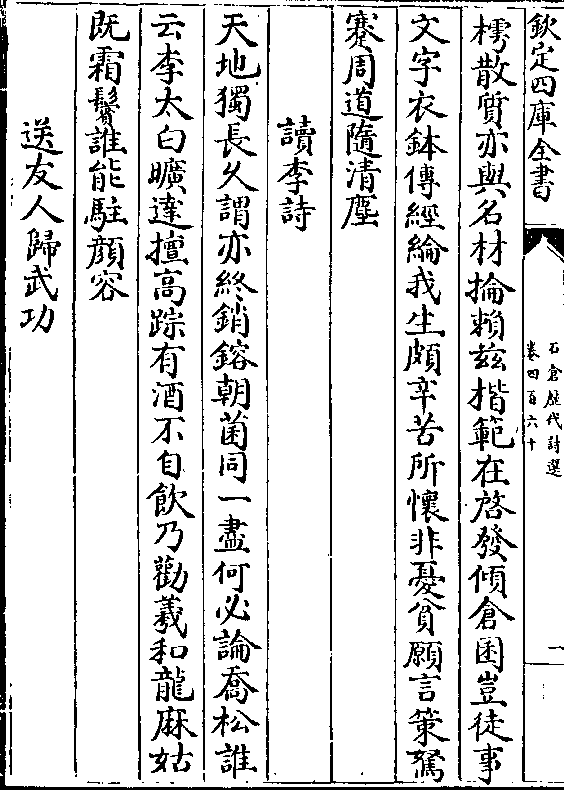 欽定四庫全書
石倉歷代詩選
卷四百六十
一
樗散質亦與名材掄賴兹楷範在啓發傾倉囷豈徒事
文字衣鉢傳經綸我生頗辛苦所懷非憂貧願言策駑
蹇周道隨清塵
讀李詩
天地獨長久謂亦終銷鎔朝菌同一盡何必論喬松誰
云李太白曠達擅高踪有酒不自飲乃勸羲和龍麻姑
既霜鬢誰能駐顔容
送友人歸武功